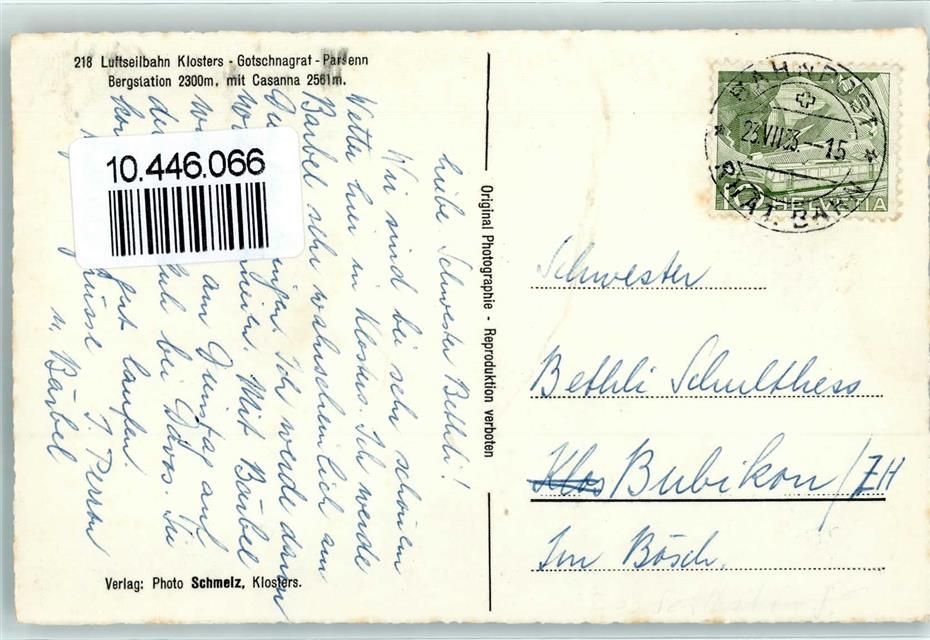 218 Luftseilbahn Klosters - Gotschnagrat - Parsenn
Bergstation 2300m, mit Casanna 2561m.
10.446.066
Liebe Schwester Bethli!
Wir sind bei sehr schönem
Wetter hier in Klosters. Ich werde
Bärbel sehr wahrscheinlich am
Ich werde daran
Mit Bärbel
am Dunstag auf
bei Davos. Sie
gut laufen.
grüsse
u. Bärbel
Verlag: Photo Schmelz, Klosters.
Original Photographie - Reproduktion verboten
BAHNPOST
23.VII.53.-15
10 HELVETIA
Schwester
Bethli Schulthess
Klos Bubikon/ZH
Im Bösch.